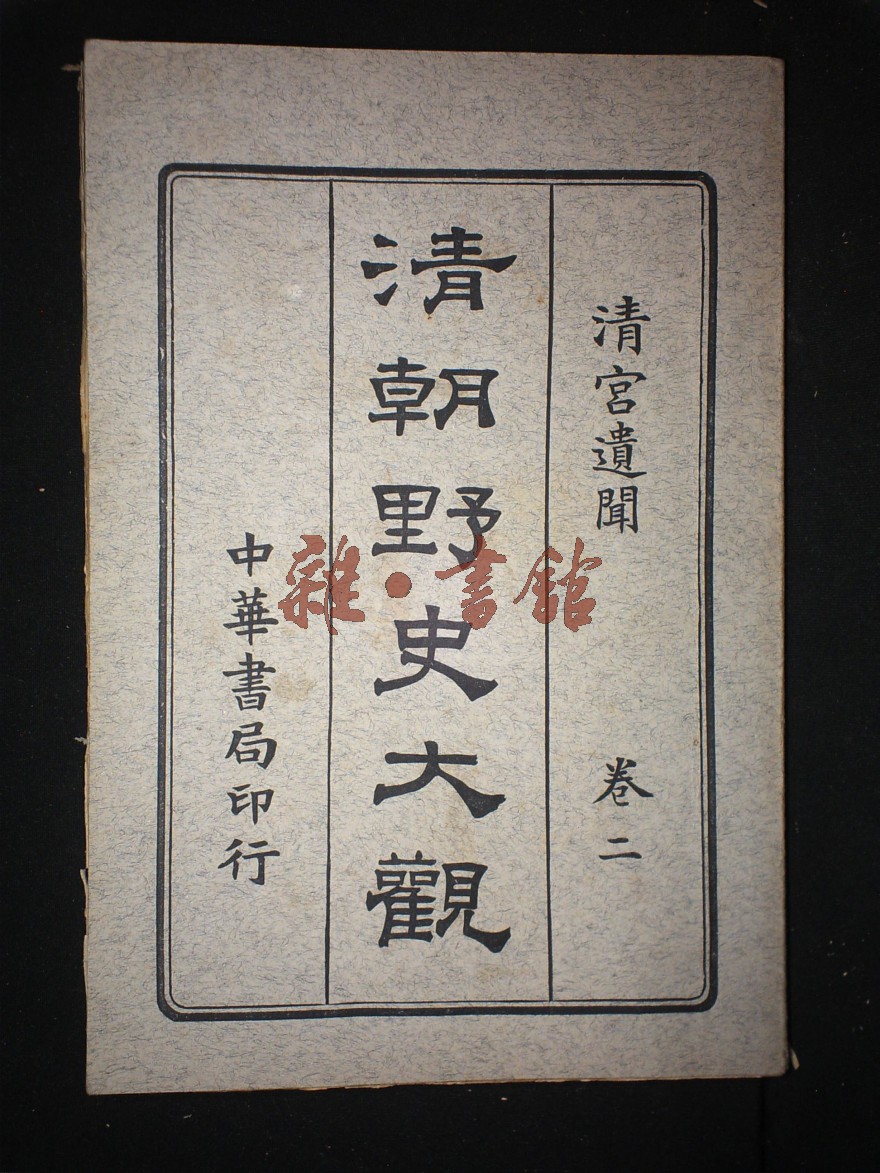 清宮遺聞 卷二
清朝野史大觀
中華書局印行
雜·書館